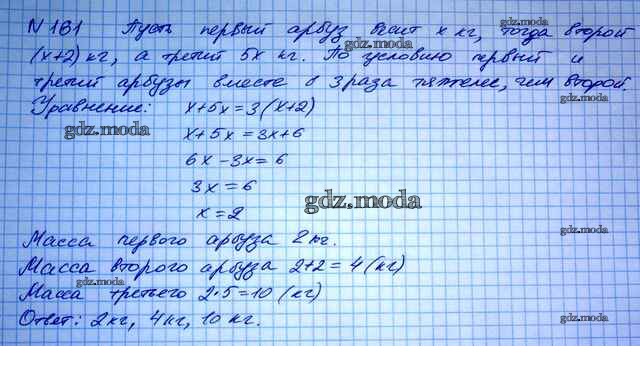 gdz.moda
N 161 Пусть первый арбуз весит x кг, тогда второй
(x+2) кг, а третий 5x кг. По условию первый и
gdz.moda
третий арбузы вместе в 3 раза тяжелее, чем второй.
Уравнение: x+5x=3(x+2)
gdz.moda
gdz.moda
x+5x=3x+6
6x-3x=6
3x=6
gdz.moda
x=2
gdz.moda
Масса первого арбуза 2 кг.
Масса второго арбуза 2+2=4 (кг)
gdz.moda
Масса третьего 2·5=10 (кг)
Ответ: 2 кг, 4 кг, 10 кг.
gdz.moda